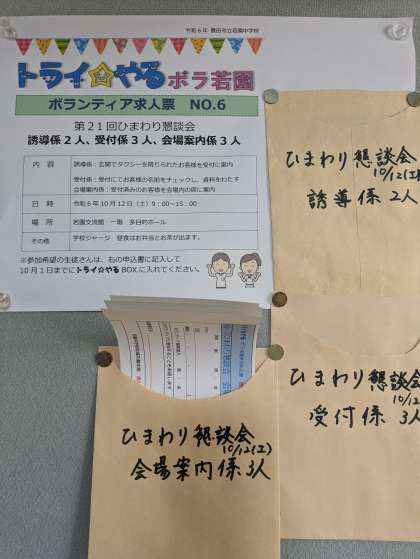 令和6年 豊田市立若園中学校
トライ☆やるボラ若園
ボランティア求人票 NO.6
第21回ひまわり懇談会
誘導係2人、受付係3人、会場案内係3人
内容
誘導係：玄関でタクシーを降りられたお客様を受付に案内
受付係：受付にてお客様の名前をチェックし、資料をわたす
会場案内係：受付済みのお客様を会場内の席に案内
日時
令和6年10月12日（土）9：00～15：00
場所
若園交流館 一階 多目的ホール
その他
学校ジャージ 昼食はお弁当とお茶が出ます。
※参加希望の生徒さんは、右の申込書に記入して
10月1日までにトライ☆やるBOXに入れてください。
ひまわり懇談会
10/12(土)
誘導係2人
ひまわり懇談会
10/12
受付係3人
ひまわり懇談会
10/12(土)
会場案内係3人